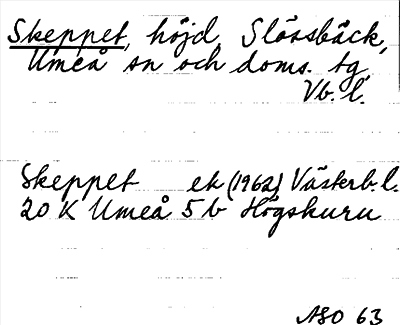 Skeppet, höjd, Slössbäck,
Umeå sn och doms. tg,
Vb. l.
Skeppet ek (1962) Västerb. l.
20 K Umeå 5 b Högskuru
ASO 63